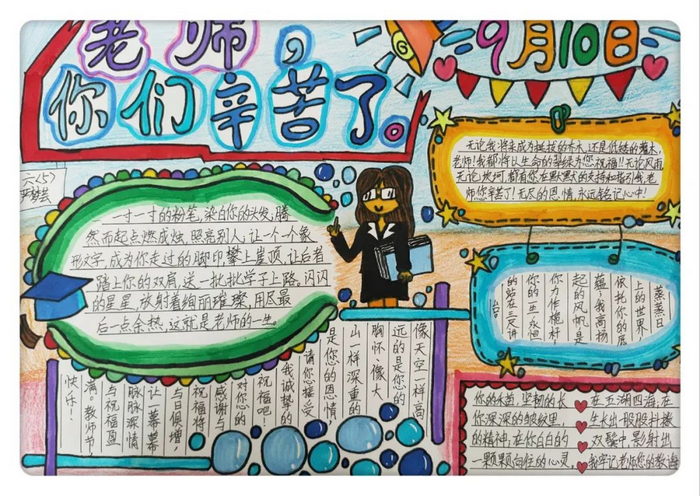 老师，
你们辛苦了。
9月10日
六(5)
一寸一寸的粉笔,染白你的头发,腾
然而起点燃成烛,照亮别人,让一个一个象
形文字,成为你走过的脚印攀上崖顶,让后者
踏上你的双肩,送一批批学子上路,闪闪
的星星,放射着绚丽璀璨,用尽最
后一点余热,这就是老师的一生。
无论我将来成为挺拔的乔木,还是低矮的灌木,
老师!我都将以生命的翠绿为您祝福!!无论风雨,
无论坎坷,都有您在默默的支持和指引我,老
师你辛苦了!无尽的恩情,永远铭记心中!
蒸蒸日
上的世界
依托你的底
蕴,我高扬
起的风帆是
你为作桅杆
你的一生,永恒
的站在三尺讲
台。
像天空一样高
远的是您的
胸怀,像大
山一样深重的
是您的恩情,
请您接受
我诚挚的
祝福吧
对您的
感谢与
祝福将
与日俱增,
让一幕幕
脉脉深情
与祝福盈
满。教师节
快乐!
你的水笛,坚韧的长
你深深的皱纹里,
的精神,在你白白的
一颗颗向往的心灵。
在五湖四海,在
生长出一股股抖擞
双鬓中,影射出
我牢记老师您的教诲